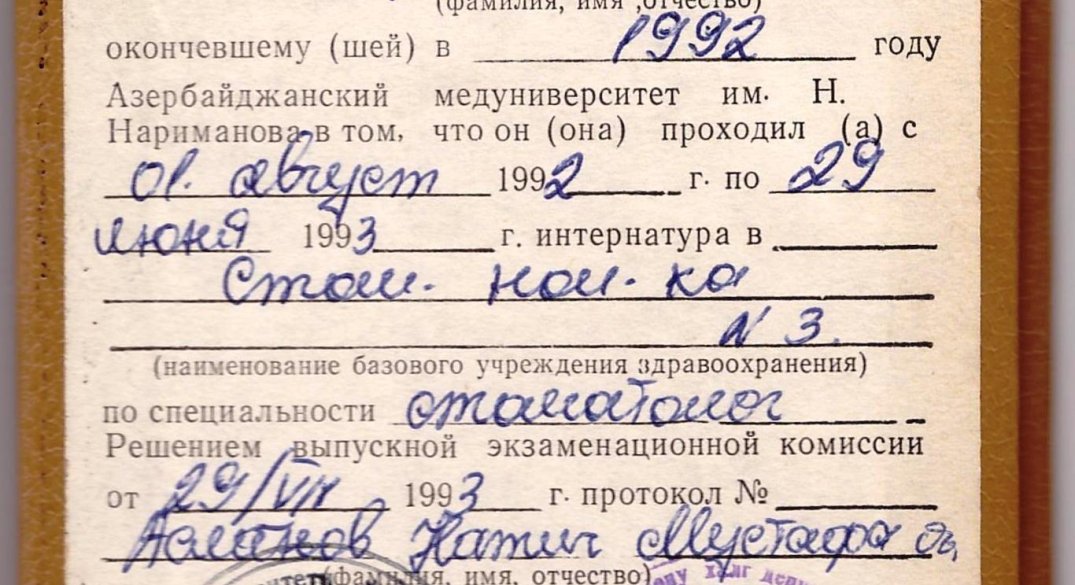 (фамилия, имя ,отчество)
окончевшему (шей) в 1992 году
Азербайджанский медуниверситет им. Н.
Нариманова в том, что он (она) проходил (а) с
01. август 1992 г. по 29
июня 1993 г. интернатура в
Стом. пол-ка
N 3.
(наименование базового учреждения здравоохранения)
по специальности стоматолог
Решением выпускной экзаменационной комиссии
от 29/VII 1993 г. протокол №
Асланов Натиг Мустафа
(фамилия, имя, отчество)